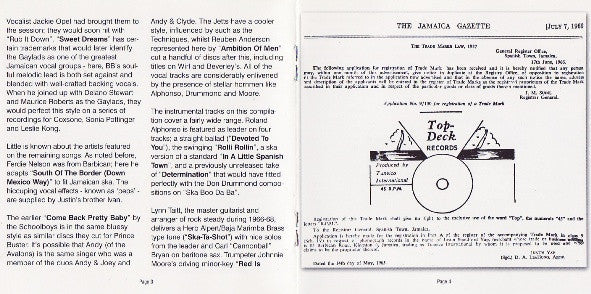 Vocalist Jackie Opel had brought them to
the session; they would soon hit with
"Rub It Down". "Sweet Dreams" has cer-
tain trademarks that would later identify
the Gaylads as one of the greatest
Jamaican vocal groups - here, BB's soul-
ful melodic lead is both set against and
blended with well-crafted backing vocals.
When he joined up with Delano Stewart
and Maurice Roberts as the Gaylads, they
would perfect this style on a series of
recordings for Coxsone, Sonia Pottinger
and Leslie Kong.
Little is known about the artists featured
on the remaining songs. As noted before,
Ferdie Nelson was from Barbican; here he
adapts "South Of The Border (Down
Mexico Way)" to fit Jamaican ska. The
hiccuping vocal effects - known as 'peps' -
are supplied by Justin's brother Ivan.
The earlier "Come Back Pretty Baby" by
the Schoolboys is in the same bluesy
style as similar discs they cut for Prince
Buster. It's possible that Andy (of the
Avalons) is the same singer who was a
member of the duos Andy & Joey and
Page 3
Andy & Clyde. The Jets have a cooler
style, influenced by such as the
Techniques, whilst Reuben Anderson
represented here by "Ambition Of Men"
cut a handful of discs after this, including
titles on Wirl and Beverley's. All of the
vocal tracks are considerably enlivened
by the presence of stellar hornmen like
Alphonso, Drummond and Moore.
The instrumental tracks on this compila-
tion cover a fairly wide range. Roland
Alphonso is featured as leader on four
tracks; a straight ballad ("Devoted To
You"), the swinging "Rolli Rollin", a ska
version of a standard "In A Little Spanish
Town"; and a previously unreleased take
of "Determination" that would have fitted
perfectly with the Don Drummond compo-
sitions on "Ska Boo Da Ba".
Lynn Taitt, the master guitarist and
arranger of rock steady during 1966-68,
delivers a Herb Alpert/Baja Marimba Brass
type tune ("Ska-Ta-Shot") with nice solos
from the leader and Carl "Cannonball"
Bryan on baritone sax. Trumpeter Johnnie
Moore's driving minor-key "Red Is
THE JAMAICA GAZETTE
[JULY 7, 1966
THE TRADE MARKS LAW, 1957
General Register Office,
Spanish Town, Jamaica,
17th June, 1965.
The following application for registration of Trade Mark has been received and it is hereby notified that any person
may, within one month of this advertisement, give notice in duplicate at the Registry Office, of opposition to registration
Registrar General.
for registration of a Trade Mark
Top-
Deck
RECORDS
Produced by
Tuneico
International
45 R.P.M.
Registration of this Trade Mark shall give no right to the exclusive use of the word "Top", the numerals "45" and the
To the Registrar General, Spanish Town, Jamaica.
Dated the 14th day of May, 1965
Page 4